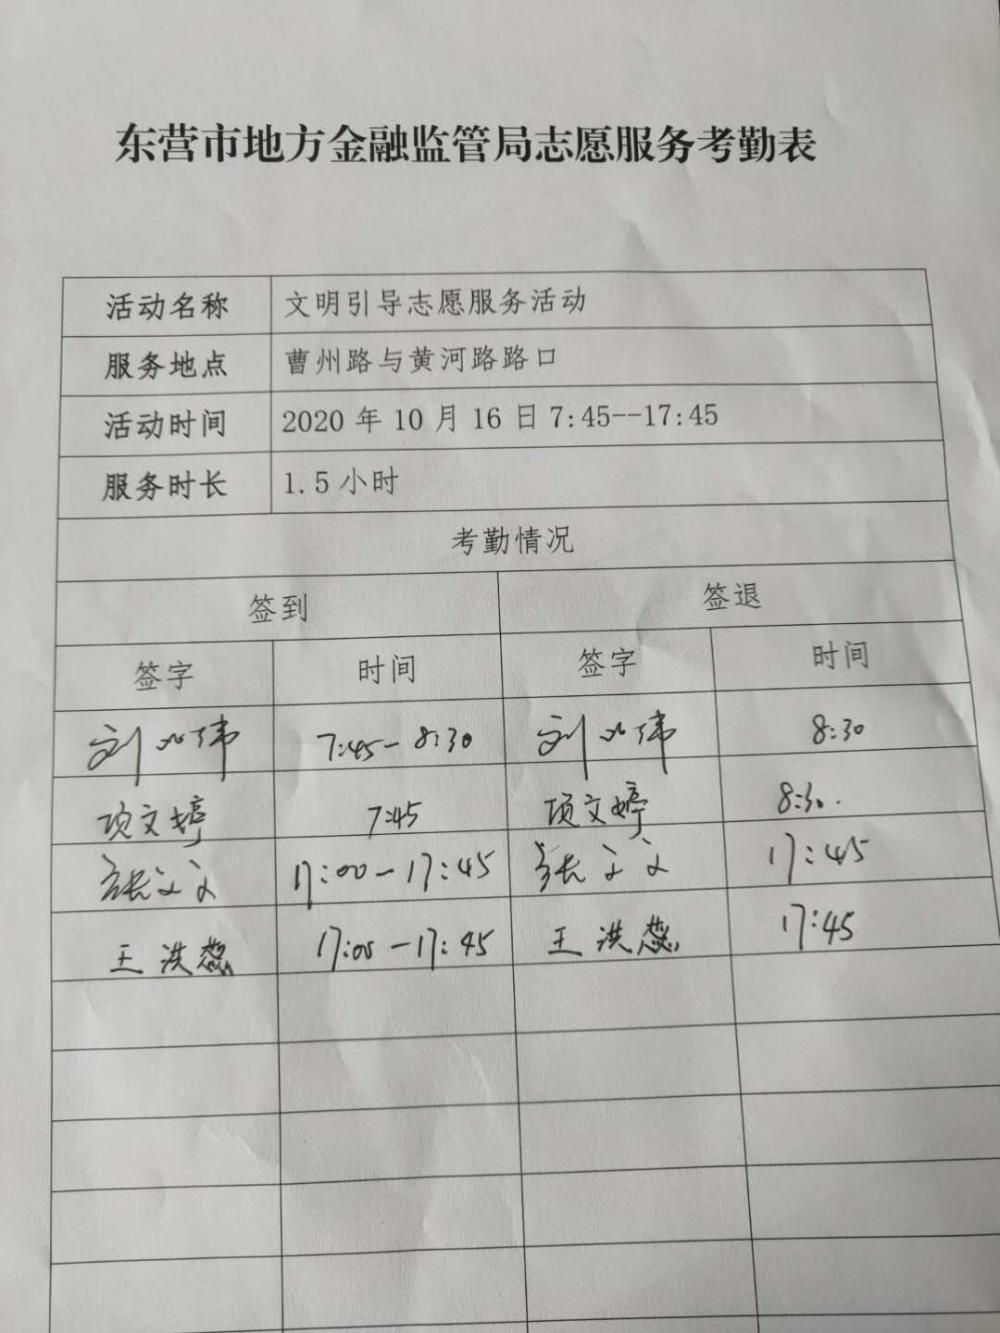 东营市地方金融监管局志愿服务考勤表
活动名称 文明引导志愿服务活动
服务地点 曹州路与黄河路路口
活动时间 2020年10月16日7:45--17:45
服务时长 1.5小时
考勤情况
签到 签退
签字 时间 签字 时间
刘 伟 7:45-8:30 刘 伟 8:30
项文婷 7:45 项文婷 8:30.
张文文 17:00-17:45 张文文 17:45
王洪蕊 17:00-17:45 王洪蕊 17:45